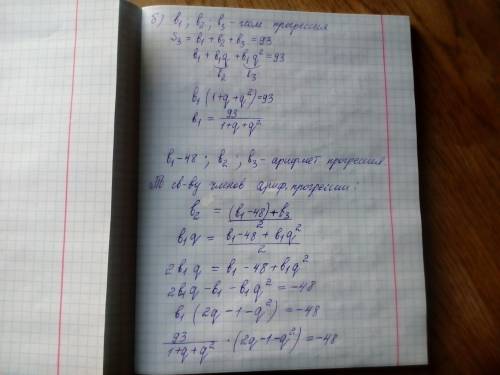 б) b₁; b₂; b₃ - геом прогрессия
S₃ = b₁ + b₂ + b₃ = 93
b₁ + b₁q + b₁q² = 93
b₂ b₃
b₁(1+q+q²) = 93
b₁ = 93/(1+q+q²)
b₁-48; b₂; b₃ - арифмет прогрессия
По св-ву членов ариф. прогрессии:
b₂ = ((b₁-48)+b₃)/2
b₁q = (b₁-48+b₁q²)/2
2b₁q = b₁-48+b₁q²
2b₁q-b₁-b₁q² = -48
b₁(2q-1-q²) = -48
93/(1+q+q²) · (2q-1-q²) = -48